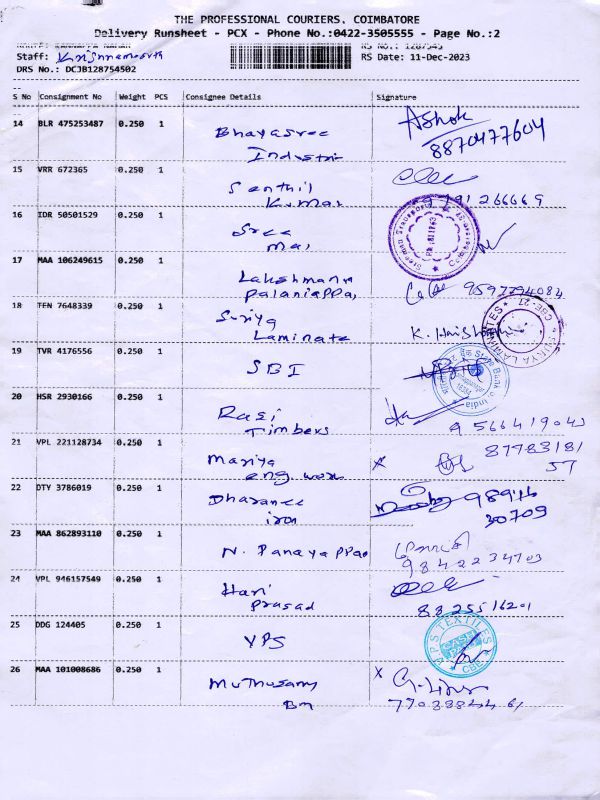 THE PROFESSIONAL COURIERS, COIMBATORE
Delivery Runsheet - PCX - Phone No.:0422-3505555 - Page No.:2
RS No.: 1287545
Staff: Krishnamoorth
RS Date: 11-Dec-2023
DRS No.: DCJB128754502
S No Consignment No Weight PCS Consignee Details Signature
14 BLR 475253487 0.250 1 Bhayasree Ashok
8870477604
15 VRR 672365 0.250 1 Senthil
Kumar 9791266669
16 IDR 50501529 0.250 1 Sree
17 MAA 106249615 0.250 1 Lakshmann
Palaniappa 9597794084
18 TEN 7648339 0.250 1 Suriya
Laminate K.
19 TVR 4176556 0.250 1 SBI
State Bank of India
20 HSR 2930166 0.250 1 Rasi
Timbers
21 VPL 221128734 0.250 1 Mariya 87783181
eng. work 57
22 DTY 3786019 0.250 1 Dharanee
iron 30709
23 MAA 862893110 0.250 1 N. Panayappan
9842234703
24 VPL 946157549 0.250 1 Hari
Prasad 8825516201
25 DDG 124405 0.250 1 VPS
V.P.S TEXTILES
CBE
26 MAA 101008686 0.250 1 Muthusamy
Bm